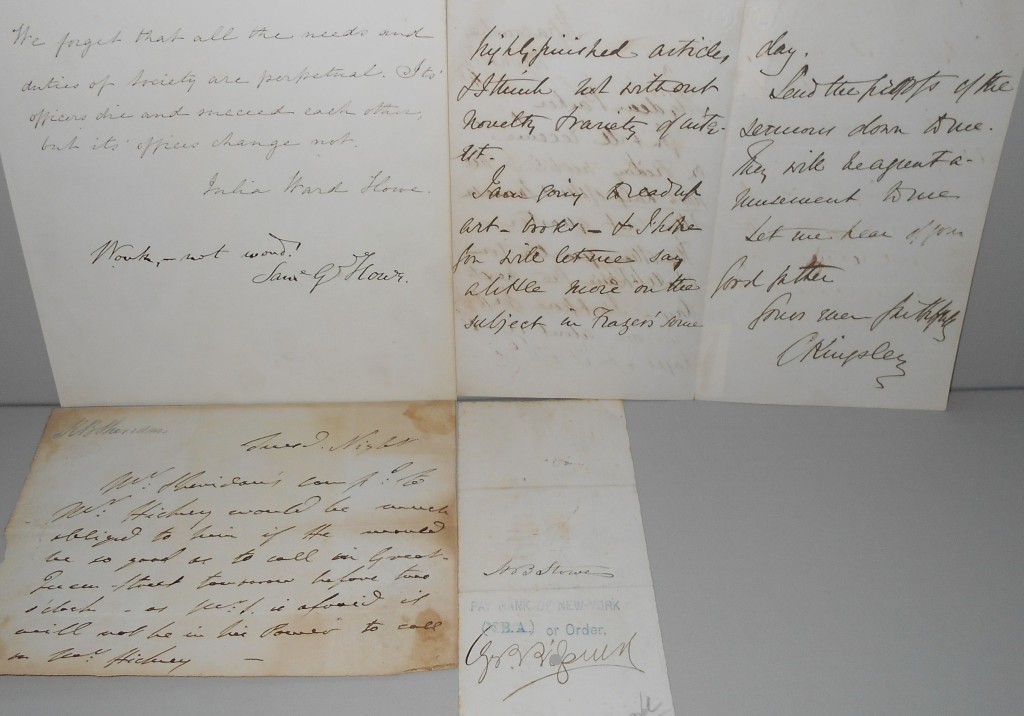 We forget that all the needs and
duties of Society are perpetual. Its
officers die and succeed each other,
but its offices change not.
Julia Ward Howe.
Work, – not word!
Saml G Howe.
highly-finished articles
& I think not without
novelty & variety of inter-
est.
I am going to read up
art-books – & I hope
you will let me say
a little more on the
subject in Frazer's some
day.
Send the proofs of the
sermons down to me.
They will be a great a-
musement to me
Let me hear of your
Good father
Yours ever faithfully
C Kingsley
R B Sheridan
Tuesd. Night
Mr. Sheridan's compts. to
Mr. Hickey would be much
obliged to him if He would
be so good as to call in Great-
Queen-Street tomorrow before two
o'clock – as Mr. S. is afraid it
will not be in his Power to call
on Mr. Hickey –
H B Stowe
PAY BANK OF NEW-YORK
(N.B.A.) or Order.